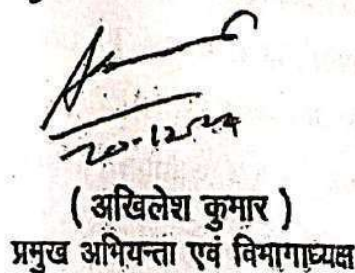 20-12-24
( अखिलेश कुमार )
प्रमुख अभियन्ता एवं विभागाध्यक्ष